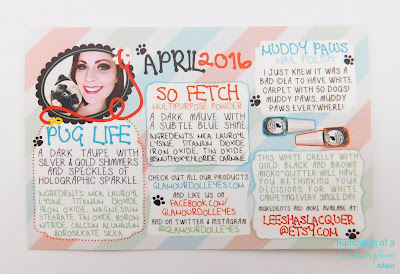 APRIL 2016
PUG LIFE
A DARK TAUPE WITH
SILVER & GOLD SHIMMERS
AND SPECKLES OF
HOLOGRAPHIC SPARKLE.
INGREDIENTS: MICA, LAUROYL
LYSINE, TITANIUM DIOXIDE,
IRON OXIDE, MAGNESIUM
STEARATE, TIN OXIDE, BORON
NITRIDE, CALCIUM ALUMINUM
BOROSILICATE, SILICA
SO FETCH
MULTIPURPOSE POWDER
A DARK MAUVE WITH
A SUBTLE BLUE SHINE
INGREDIENTS: MICA, LAUROYL
LYSINE, TITANIUM DIOXIDE,
IRON OXIDE, TIN OXIDE,
BISMUTH OXYCHLORIDE, CARMINE
CHECK OUT ALL OUR PRODUCTS
GLAMOURDOLLEYES.COM
AND LIKE US ON
FACEBOOK.COM/
GLAMOURDOLLEYES
AND ON TWITTER & INSTAGRAM
@GLAMOURDOLLEYES
MUDDY PAWS
NAIL POLISH
I JUST KNEW IT WAS A
BAD IDEA TO HAVE WHITE
CARPET WITH 50 DOGS!
MUDDY PAWS, MUDDY
PAWS EVERYWHERE!
THIS WHITE CRELLY WITH
GOLD, BLACK AND BROWN
MICRO-GLITTER WILL HAVE
YOU RETHINKING YOUR
DECISIONS FOR WHITE
CARPETING EVERY SINGLE DAY.
INGREDIENTS AND MORE AVAILABLE AT:
LEESHASLACQUER
@ETSY.COM
Ramblings of a
Addict